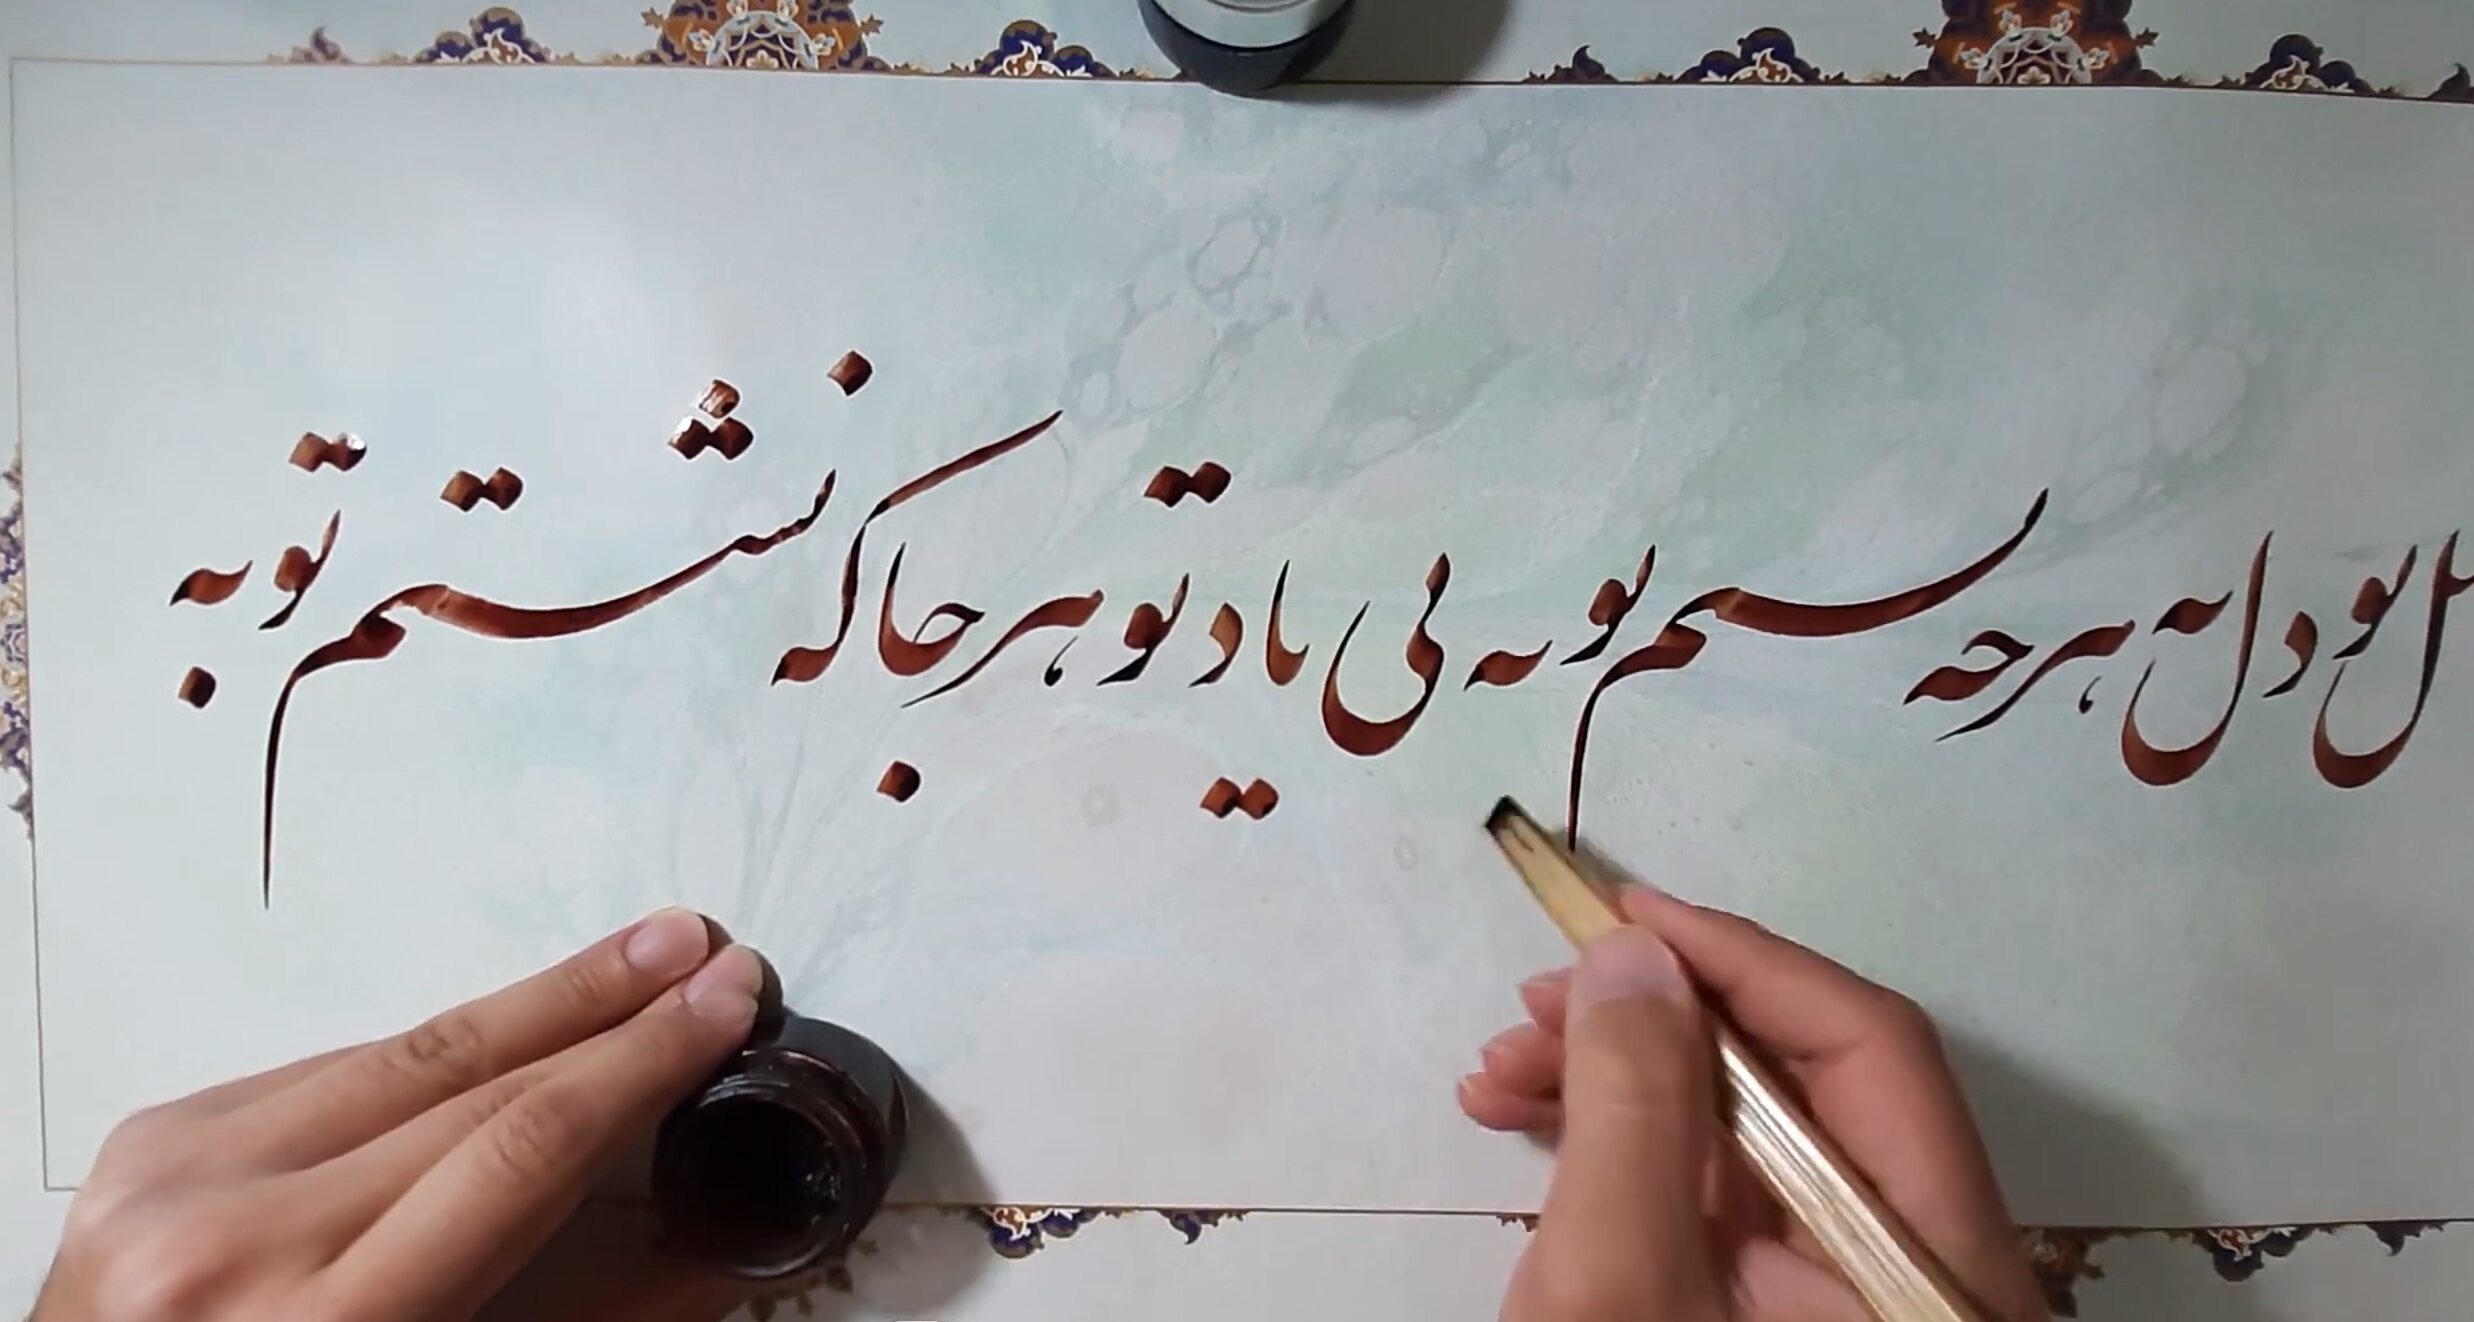 تو دل به هرچه بستم توبه بی یاد تو هرجا که نشستم توبه